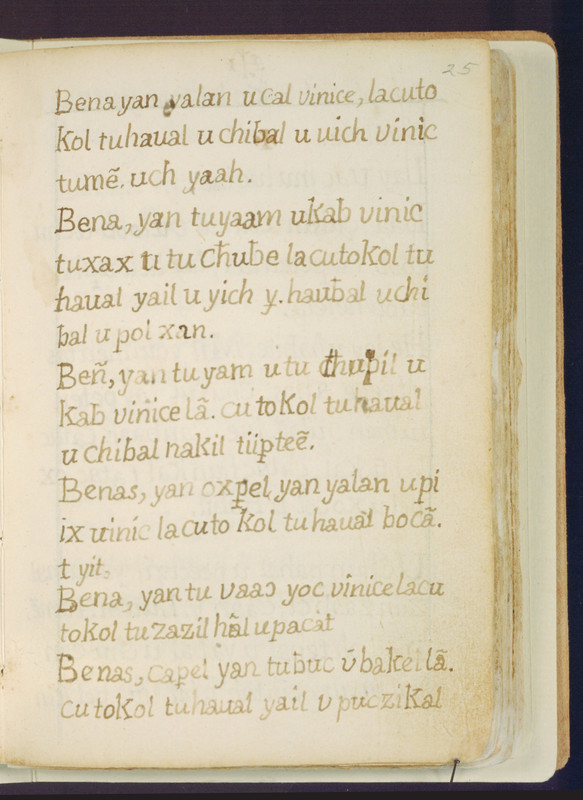 25
Bena yan yalan u cal vinice, lacuto
Kol tuhaual u chibal u uich vinic
tumẽ. uch yaah.
Bena, yan tuyaam ukab vinic
tuxax ti tu chube lacutoKol tu
haual yail u yich y. haubal uchi
bal u pol xan.
Beñ, yan tu yam u tu chupil u
Kab vinice lã. cu toKol tuhaual
u chibal nakil tiipteẽ.
Benas, yan oxpel yan yalan u pi
ix uinic lacuto Kol tuhaual bocã.
t yit,
Bena, yantu vaaɔ yoc vinice lacu
toKol tuzazil hãl upacat
Benas, capel yan tubuc v̄ bakel lã.
cu toKol tuhaual yail v puczikal